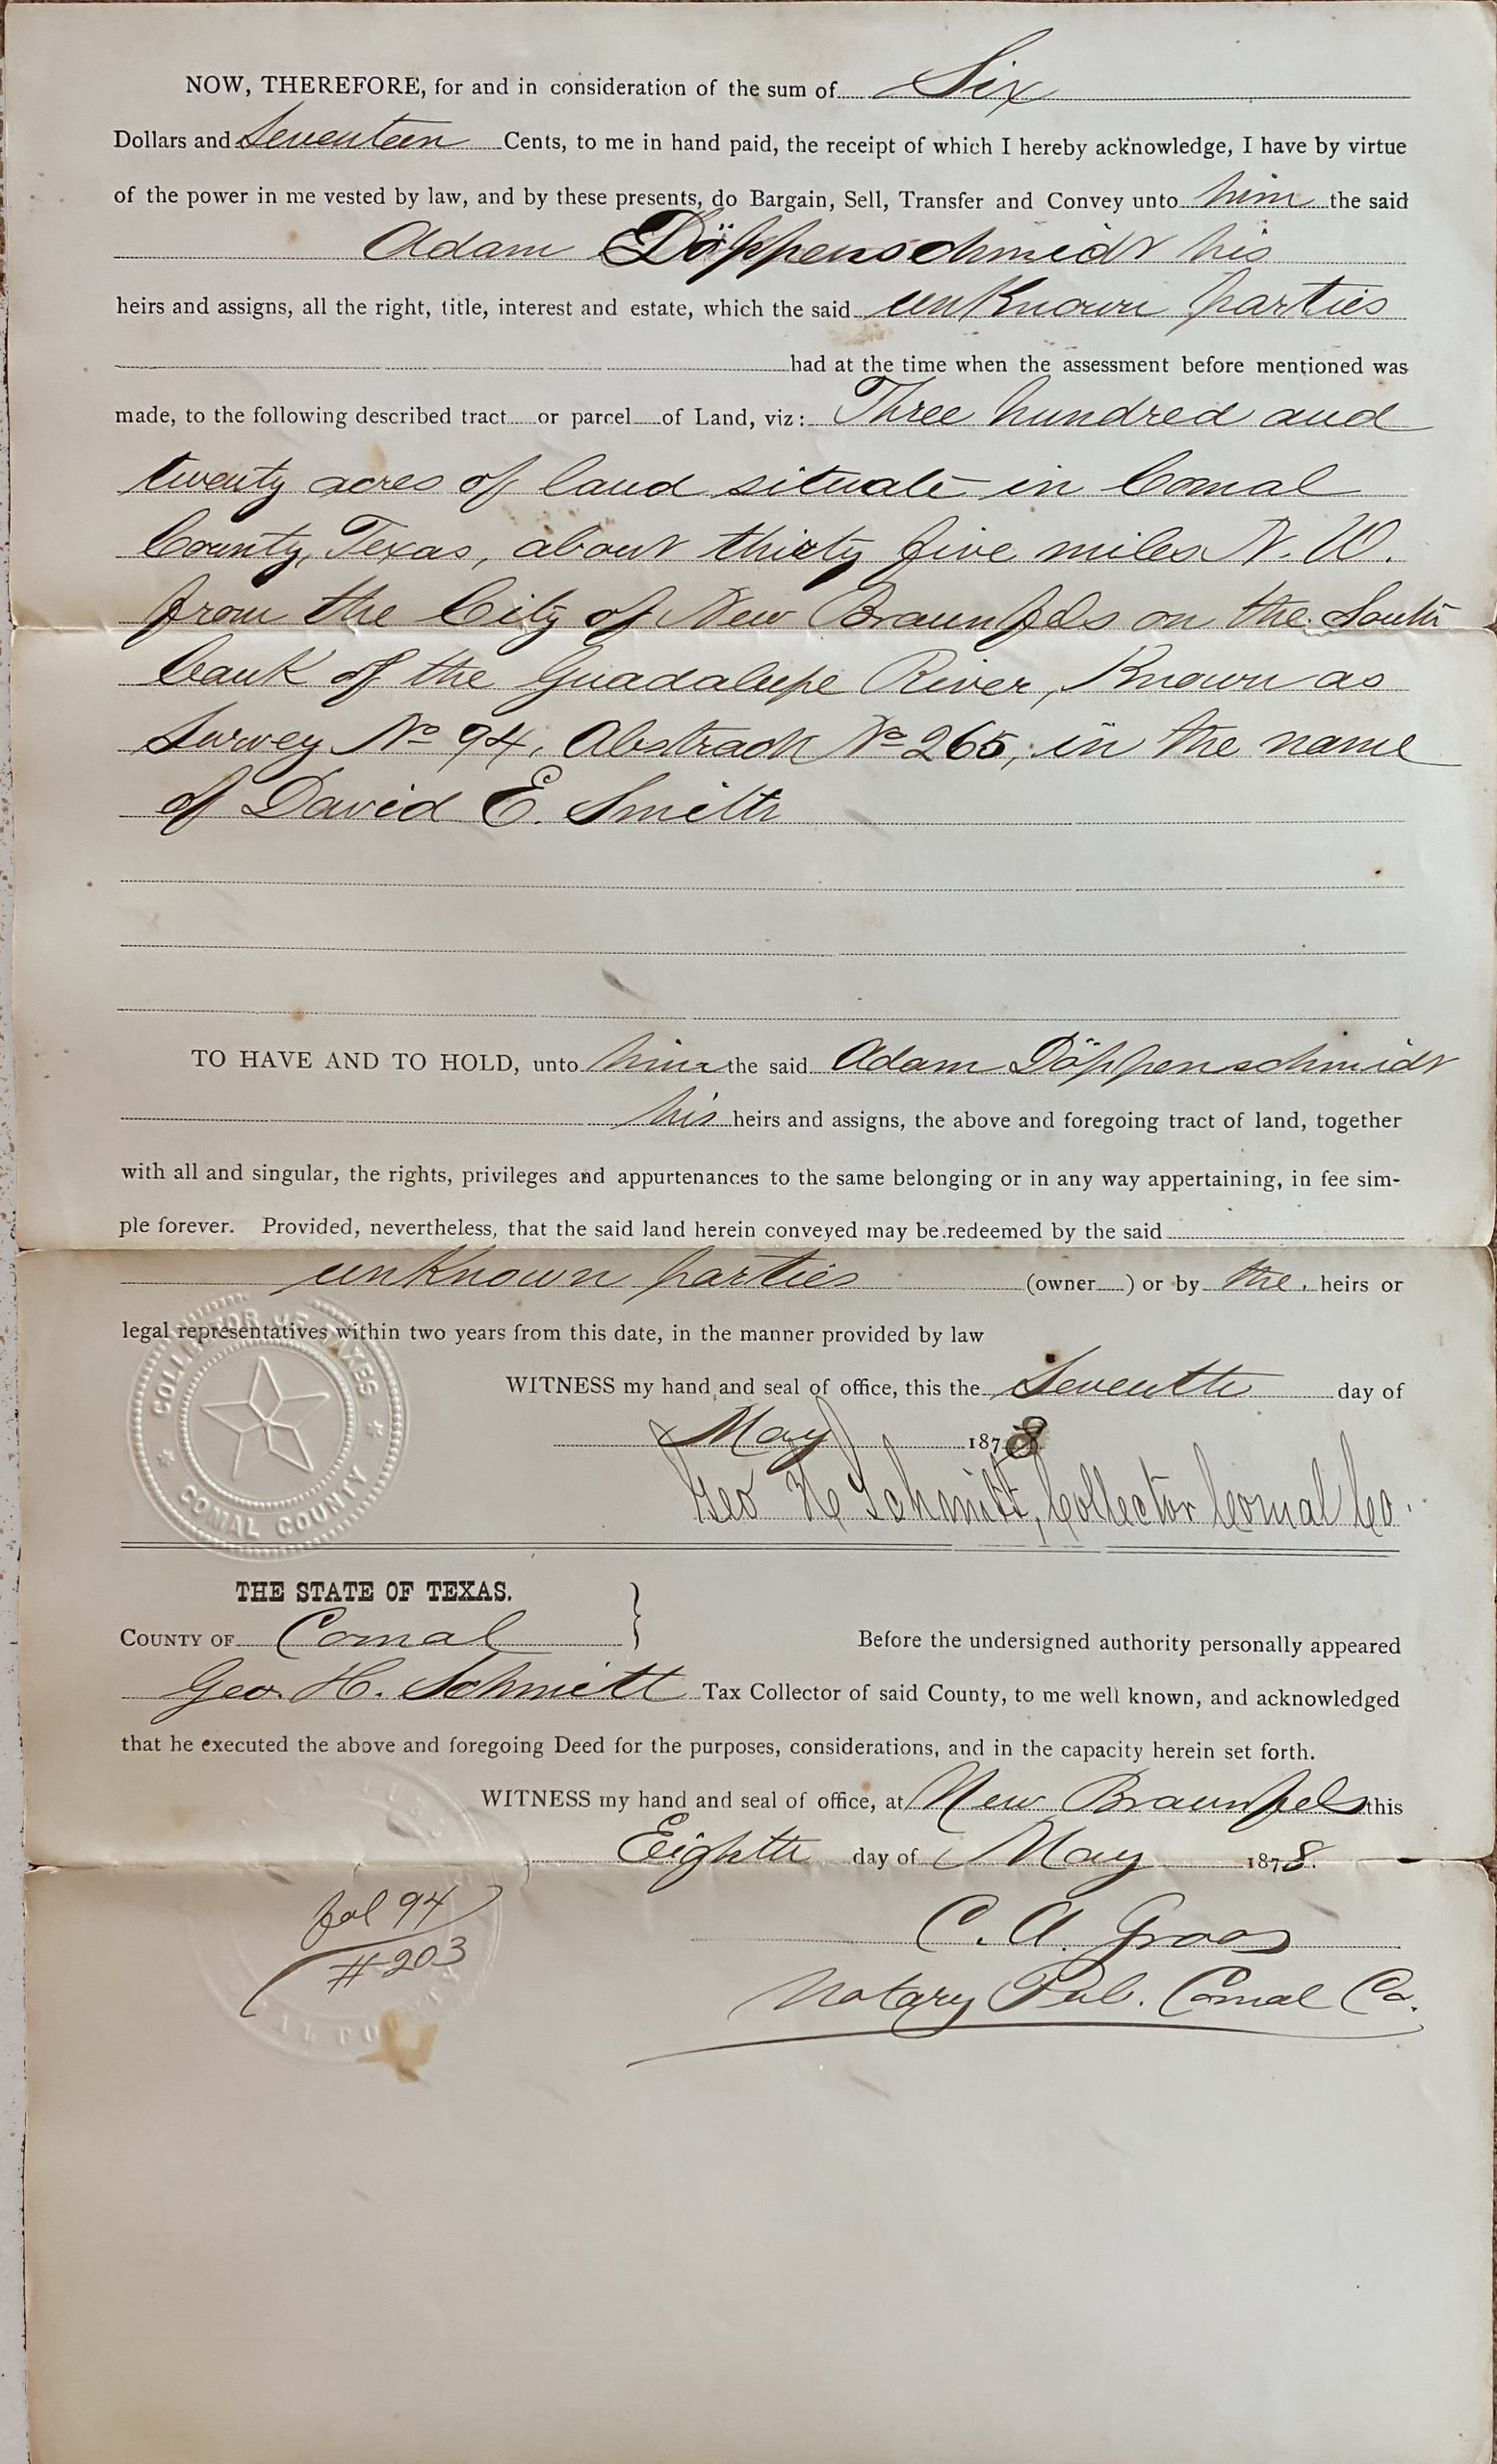 NOW, THEREFORE, for and in consideration of the sum of Six
Dollars and Seventeen Cents, to me in hand paid, the receipt of which I hereby acknowledge, I have by virtue
of the power in me vested by law, and by these presents, do Bargain, Sell, Transfer and Convey unto him the said
Adam Döppenschmidt his
heirs and assigns, all the right, title, interest and estate, which the said unknown parties
had at the time when the assessment before mentioned was
made, to the following described tract or parcel of Land, viz: Three hundred and
twenty acres of land situate in Comal
County, Texas, about thirty five miles N. W.
from the City of New Braunfels on the South
bank of the Guadalupe River, Known as
Survey No 94, Abstract No 265, in the name
of David E. Smith
TO HAVE AND TO HOLD, unto him the said Adam Döppenschmidt
his heirs and assigns, the above and foregoing tract of land, together
with all and singular, the rights, privileges and appurtenances to the same belonging or in any way appertaining, in fee sim-
ple forever. Provided, nevertheless, that the said land herein conveyed may be redeemed by the said
unknown parties (owner ) or by the heirs or
legal representatives within two years from this date, in the manner provided by law
WITNESS my hand and seal of office, this the Seventh day of
May 1878
Geo H Schmitt, Collector Comal Co.
COLLECTOR OF TAXES
COMAL COUNTY
THE STATE OF TEXAS.
COUNTY OF Comal } Before the undersigned authority personally appeared
Geo. H. Schmitt Tax Collector of said County, to me well known, and acknowledged
that he executed the above and foregoing Deed for the purposes, considerations, and in the capacity herein set forth.
WITNESS my hand and seal of office, at New Braunfels this
Eighth day of May 1878.
fol 94
#203
C. A. Groos
Notary Pub. Comal Co.